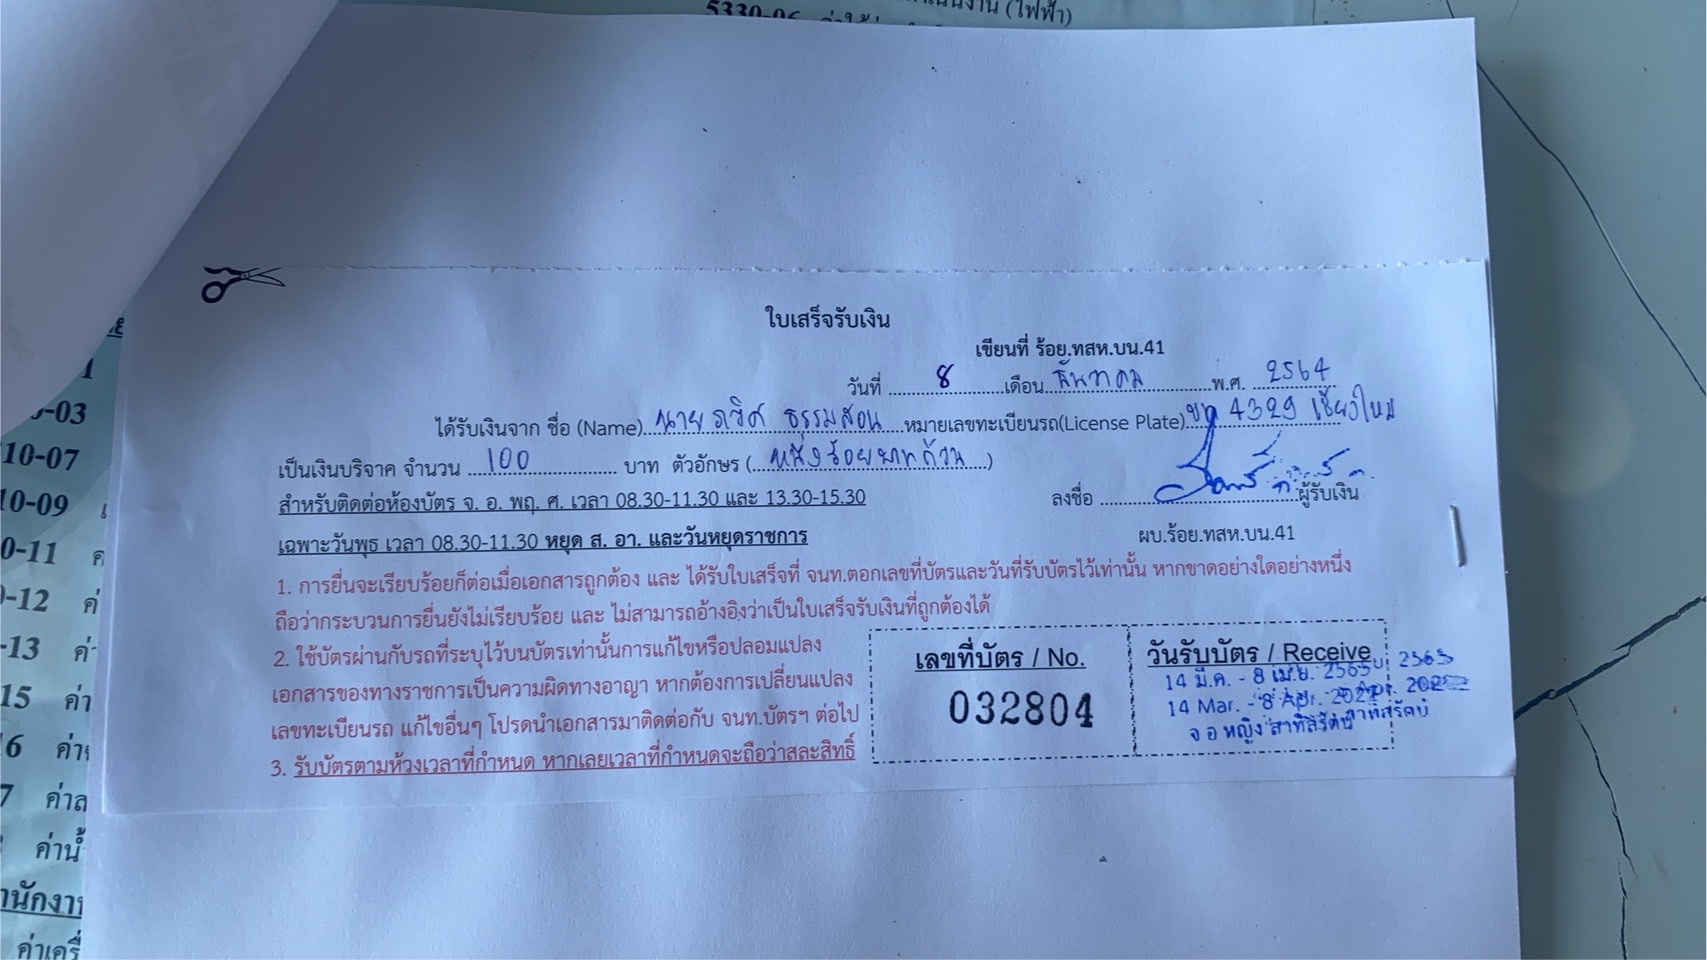 5330-06
(ไฟฟ้า)
ใบเสร็จรับเงิน
เขียนที่ ร้อย.ทสห.บน.41
วันที่ 8 เดือน ธันวาคม พ.ศ. 2564
ได้รับเงินจาก ชื่อ (Name) นาย ภวิศ ธรรมสอน หมายเลขทะเบียนรถ(License Plate) 4329 เชียงใหม่
เป็นเงินบริจาค จำนวน 100 บาท ตัวอักษร (หนึ่งร้อยบาทถ้วน)
สำหรับติดต่อห้องบัตร จ. อ. พฤ. ศ. เวลา 08.30-11.30 และ 13.30-15.30
ลงชื่อ ผู้รับเงิน
เฉพาะวันพุธ เวลา 08.30-11.30 หยุด ส. อา. และวันหยุดราชการ
ผบ.ร้อย.ทสห.บน.41
1. การยื่นจะเรียบร้อยก็ต่อเมื่อเอกสารถูกต้อง และ ได้รับใบเสร็จที่ จนท.ตอกเลขที่บัตรและวันที่รับบัตรไว้เท่านั้น หากขาดอย่างใดอย่างหนึ่ง
ถือว่ากระบวนการยื่นยังไม่เรียบร้อย และ ไม่สามารถอ้างอิงว่าเป็นใบเสร็จรับเงินที่ถูกต้องได้
2. ใช้บัตรผ่านกับรถที่ระบุไว้บนบัตรเท่านั้นการแก้ไขหรือปลอมแปลง
เอกสารของทางราชการเป็นความผิดทางอาญา หากต้องการเปลี่ยนแปลง
เลขทะเบียนรถ แก้ไขอื่นๆ โปรดนำเอกสารมาติดต่อกับ จนท.บัตรฯ ต่อไป
3. รับบัตรตามห้วงเวลาที่กำหนด หากเลยเวลาที่กำหนดจะถือว่าสละสิทธิ์
เลขที่บัตร / No.
032804
วันรับบัตร / Receive
14 มี.ค. - 8 เม.ย. 2565
14 Mar. - 8 Apr. 2022
จ อ หญิง สาทิสรัตน์
0-03
10-07
10-09
0-11
0-12 ค่
-13 ค่
15 ค่า
6 ค่า
7 ค่าล
ค่าน้ำ
ค่าเครื่